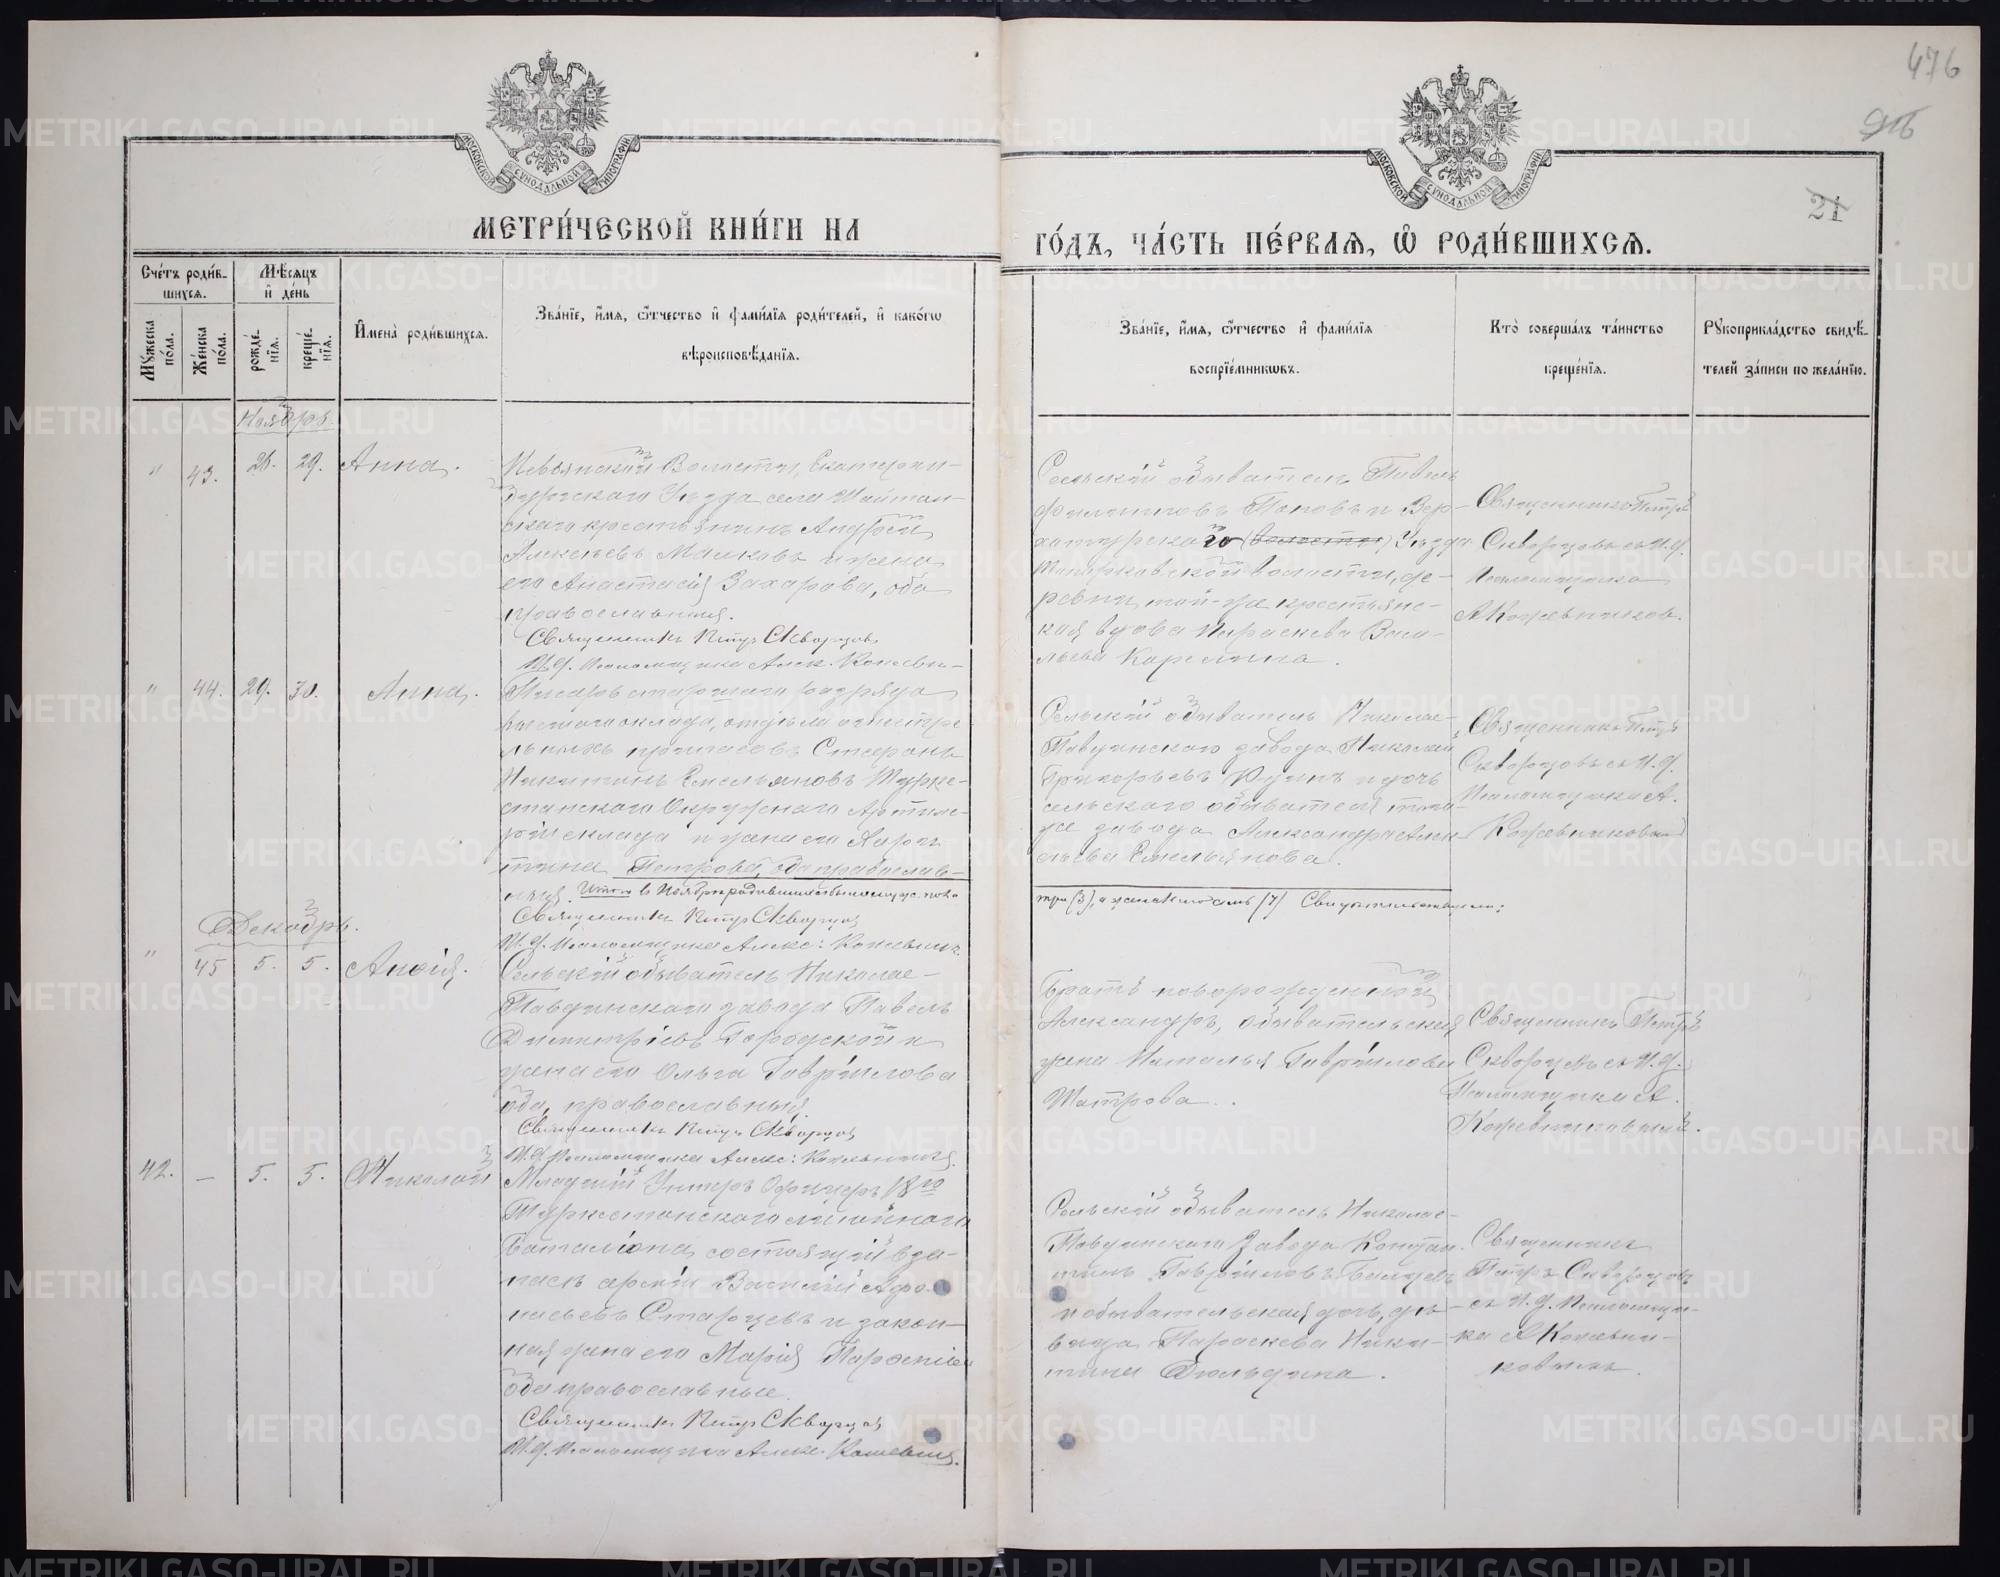 476
916
21
МОСКОВСКОЙ СѴНОДАЛЬНОЙ ТИПОГРАФІИ
МОСКОВСКОЙ СѴНОДАЛЬНОЙ ТИПОГРАФІИ
МЕТРИ́ЧЕСКОЙ КНИ́ГИ НА
ГО́ДЪ, ЧА́СТЬ ПЕ́РВАѦ, Ѽ РОДИ́ВШИХСѦ.
Сче́тъ роди́в-
шихсѧ.
Мѣ́сѧцъ
и҆ де́нь
Мꙋ́жеска
по́ла.
Же́нска
по́ла.
рожде́-
нїѧ.
креще́-
нїѧ.
И҆мена̀ роди́вшихсѧ.
Зва́нїе, и҆́мѧ, ѻ҆́тчество и҆ фами́лїѧ роди́телей, и҆ како́гѡ
вѣроисповѣ́данїѧ.
Зва́нїе, и҆́мѧ, ѻ҆́тчество и҆ фами́лїѧ
воспрїе́мникѡвъ.
Кто̀ соверша́лъ та́инство
креще́нїѧ.
Рꙋкоприкла́дство свидѣ́-
телей за́писи по жела́нїю.
Ноябрь.
" 43. 26. 29. Анна.
Невьянской Волости, Екатерин-
бургскаго Уѣзда села Шайтан-
скаго крестьянинъ Андрей
Алексѣевъ Маиковъ и жена
его Анастасія Захарова, оба
православныя.
Священникъ Петръ Скворцов
И. д. Псаломщика Алек. Кожевн-
Сельскій обыватель Павелъ
Филиповъ Поповъ и Вер-
хотурскаго (волости) Уѣзда
волости, де-
ревни той-же крестьянс-
кая вдова Параскева Васи-
льева Карелина.
Священникъ Петръ
Скворцовъ съ И. д.
Псаломщика
А Кожевников.
" 44. 29. 30. Анна.
Писарь старшаго разряда
высшаго оклада, отдѣла огнестрѣ
льныхъ припасовъ Стефанъ
Никитинъ Емельяновъ Турке-
станскаго Окружнаго Артиле-
рій склада и жена его
Петрова, оба православ-
ныя. Итого в Ноябрѣ родившихся было мужс. пола
три (3), а женскаго семь (7) Свидѣтельствуемъ:
Священникъ Петръ Скворцов
И. д. Псаломщика Алекс: Кожевник
Сельскій обыватель Николае-
Павдинскаго завода Николай
Григорьевъ и дочь
сельскаго обывателя того
же завода Александра Алек
сѣева Емельянова.
Священникъ Петръ
Скворцовъ съ И. д.
Псаломщика А.
Кожевниковым
Декабрь.
" 45 5. 5. Анфія.
Сельскій обыватель Николае-
Павдинскаго завода Павелъ
Димитріевъ Городской и
жена его Ольга Гаврілова
оба, православныя.
Священникъ Петръ Скворцов
И. д. Псаломщика Алекс: Кожевников.
Братъ новорожденной
Александръ, обывательская
жена Наталья Гаврилова
Шатрова.
Священникъ Петръ
Скворцовъ съ И. д.
Псаломщика А.
Кожевниковым.
42. — 5. 5. Николай
Младшій Унтеръ Офицеръ 18го
Туркестанскаго линейнаго
Баталіона, состоящій в за-
пасѣ арміи Василій Афо-
насьевъ Старцевъ и закон-
ная жена его Марія Парфеніева
оба православные.
Священникъ Петръ Скворцов
И. д. Псаломщика Алекс. Кожевник.
Сельскій обыватель Николае-
Павдинскаго Завода Констан-
тинъ Гавріловъ
и обывательская дочь, дѣ-
вица Параскева Ники-
тина Дюльдина.
Священникъ
Петръ Скворцовъ
съ И. д. Псаломщи-
ка А Кожевни-
ковымъ.
METRIKI.GASO-URAL.RU